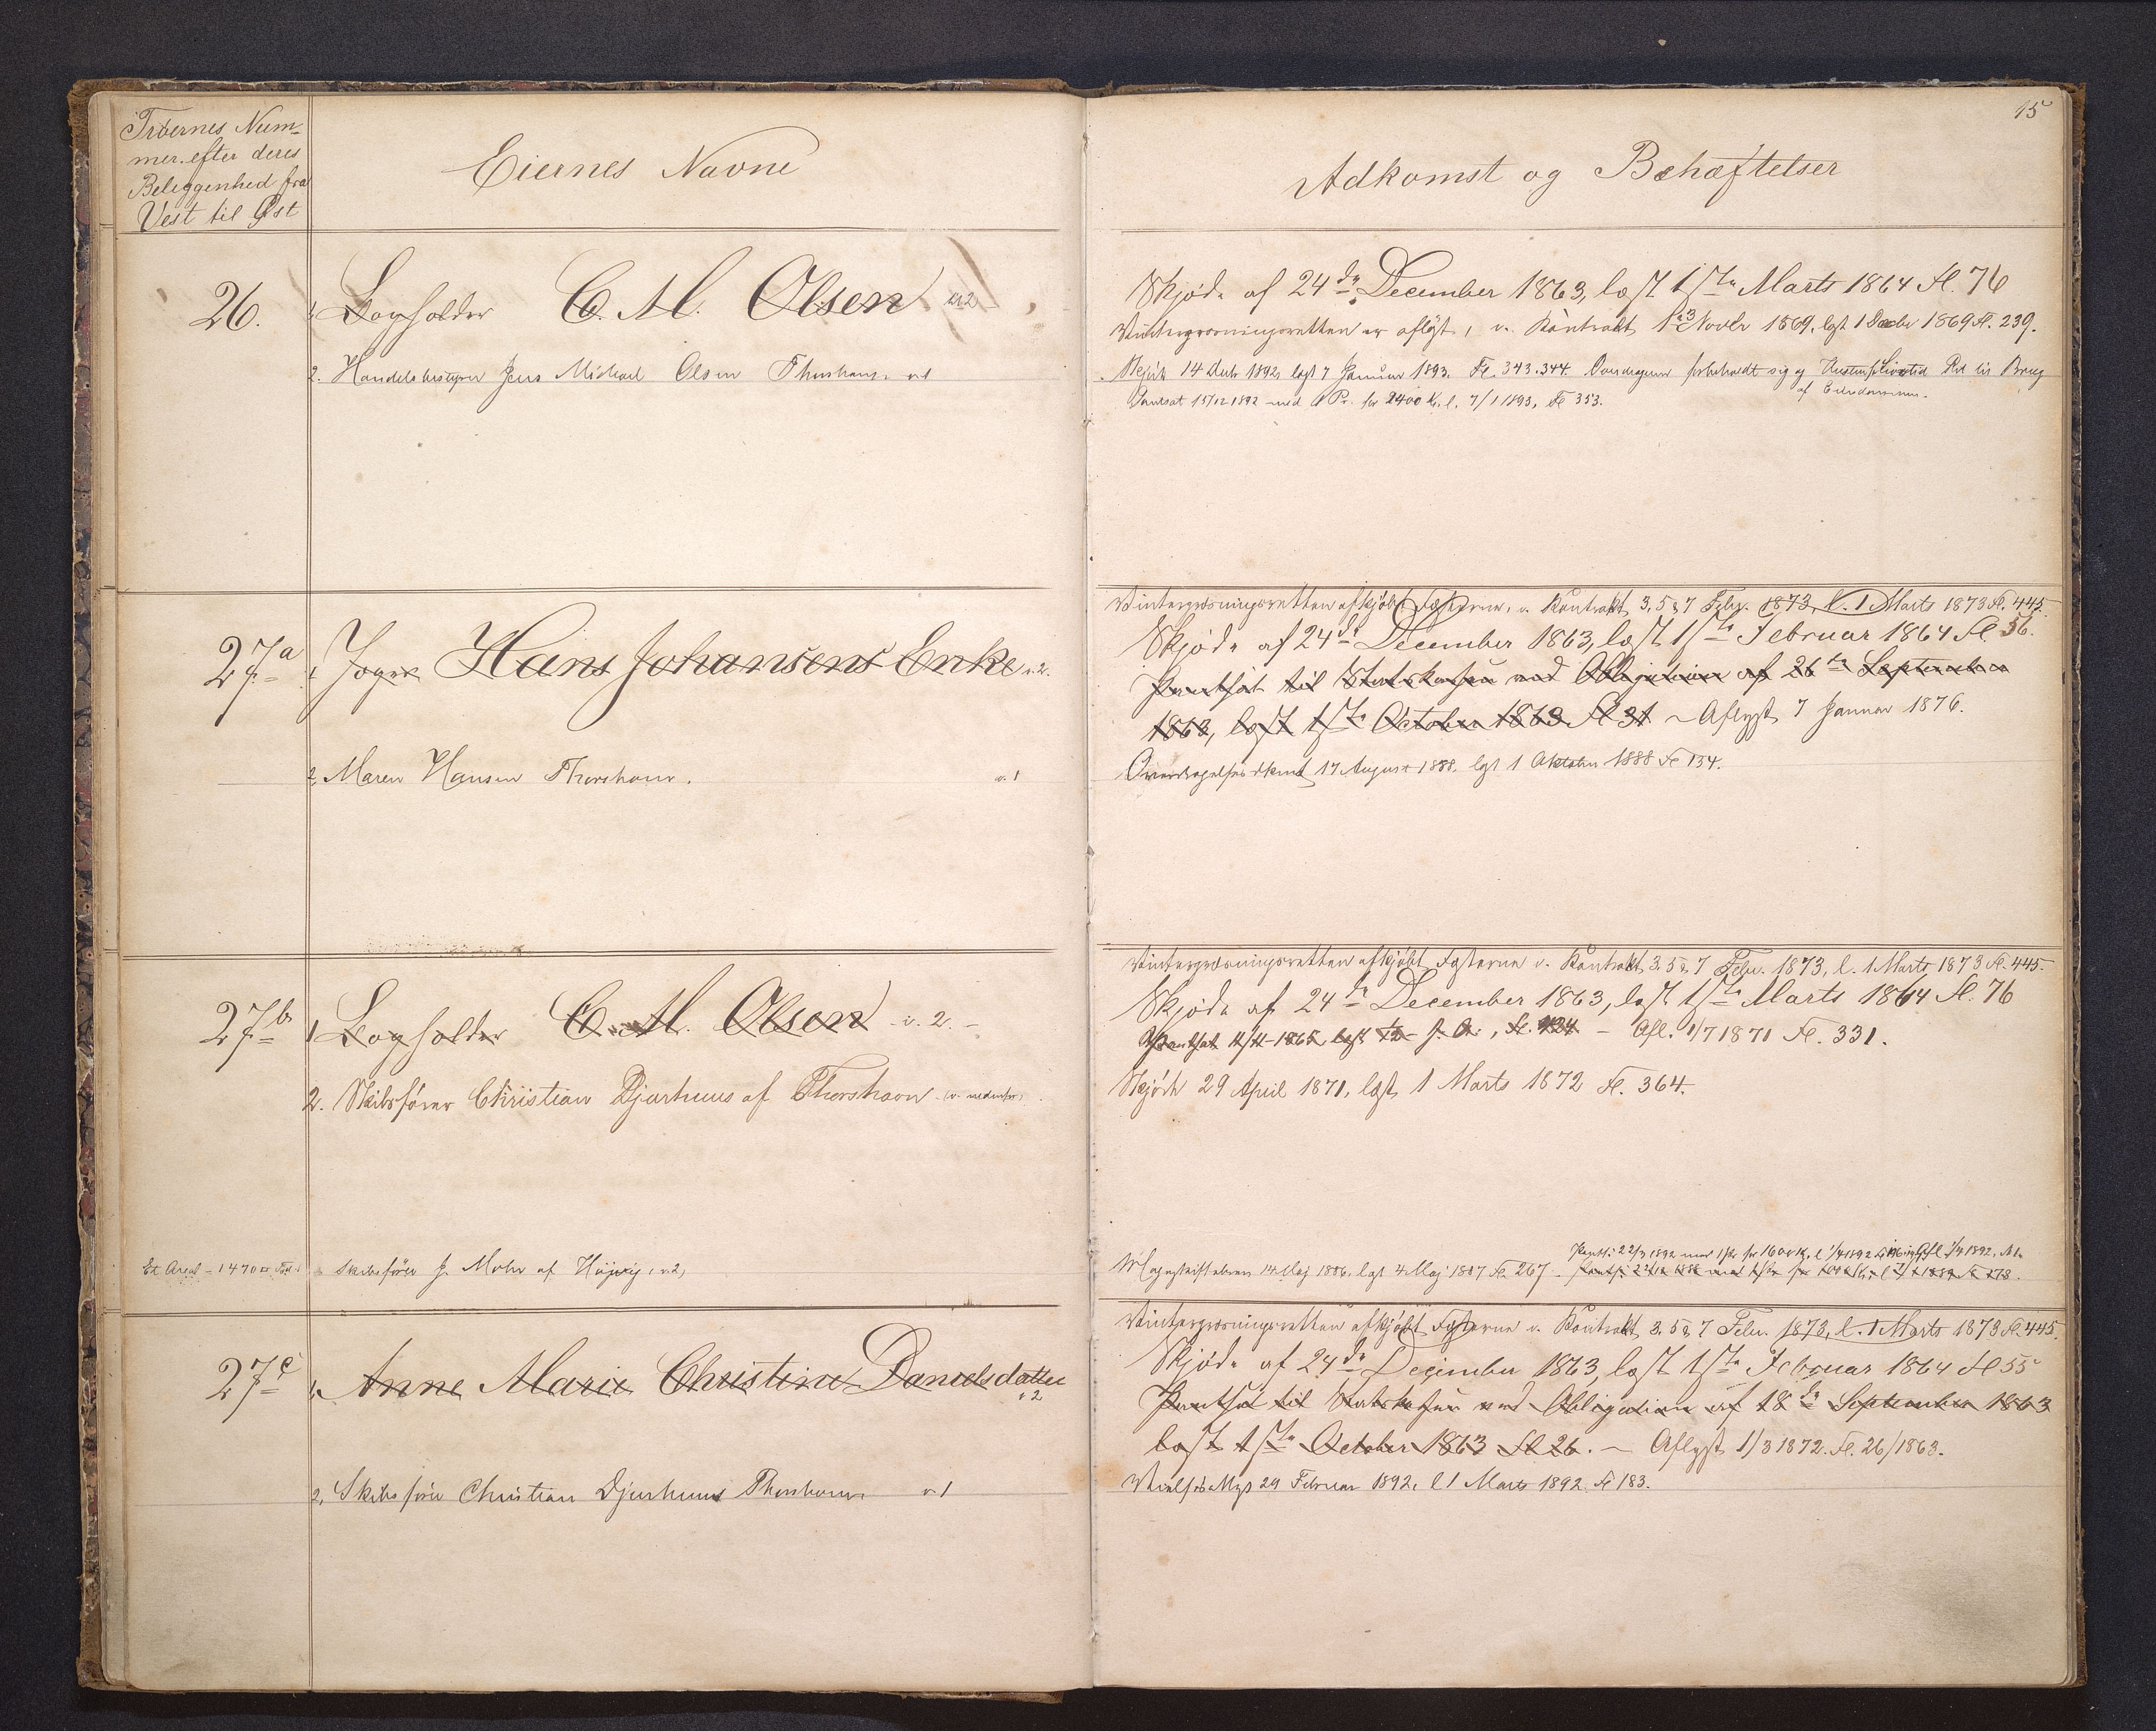 Trøernes Num-
mer efter deres
Beliggenhed fra
Vest til Øst
Eiernes Navne
26. 1. Bogholder C. M. Olsen
2. Handelsbestyrer Jens Michael Olsen Thorshavn. v. 1
27a 1. Joger Hans Johansens Enke v. 2.
2. Maren Hansen Thorshavn. v. 1
27b 1 Bogholder C. M. Olsen - v. 2. -
2. Skibsfører Christian Djurhuus af Thorshavn (v. nedenfor)
Et Areal - 1470 Skibsfører J. Mohr af Hójvig, v. 2,
27c 1. Anne Marie Christine Danielsdatter
v 2
2. Skibsfører Christian Djurhuus Thorshavn v 1
15
Adkomst og Behæftelser
Skjøde af 24de December 1863, læst 1ste Marts 1864 Fl. 76
Vintergræsningsretten er afløst, v. Kontrakt Novbr 1869, læst 1 Decbr 1869 Fl. 239.
Skjøde 14 Decbr 1892, læst 7 Januar 1893. Fl. 343.344. forbeholdt sig og Livstid Ret til Brug
af Eiendommen.
Pantsat 15/12 1892 med 1 Pr. for 2400 K. l. 7/1 1893, Fl 353.
Vintergræsningsretten afkjøbt Fæsterne, v. Kontrakt 3, 5 & 7 Febr. 1873, l. 1 Marts 1873 Fl. 445.
Skjøde af 24de December 1863, læst 1ste Februar 1864 Fl. 56.
Pantsat til Statskassen med Obligation af 26de September
1863, læst 1ste October 1863 Fl 31 - Aflyst 7 Januar 1876.
Overdragelsesdkmt 17 August 1888, læst 1 Oktober 1888 Fl 134.
Vintergræsningsretten afkjøbt Fæsterne v. Kontrakt 3. 5 & 7 Febr. 1873, l. 1 Marts 1873 Fl. 445.
Skjøde af 24de December 1863, læst 1ste Marts 1864 Fl. 76
Pantsat 11/11-1865, læst s. A., Fl. 434 - Afl. 1/7 1871 Fl. 331.
Skjøde 29 April 1871, læst 1 Marts 1872 Fl. 364.
Pantsat 22/3 1892 med 1 Pr for 1600 K, l 1892
Mageskiftebrev 14 Maj 1886, læst 4 Maj 1887 Fl. 267.
Vintergræsningsretten afkjøbt Fæsterne v. Kontrakt 3. 5 & 7 Febr. 1873, l. 1 Marts 1873 Fl. 445.
Skjøde af 24de December 1863, læst 1ste Februar 1864 Fl 55
Pantsat til Statskassen med Obligation af 18de September 1863
læst 1ste October 1863 Fl 26. - Aflyst 1/3 1872. Fl. 26/1863.
29 Februar 1892, l 1 Marts 1892 Fl 183.